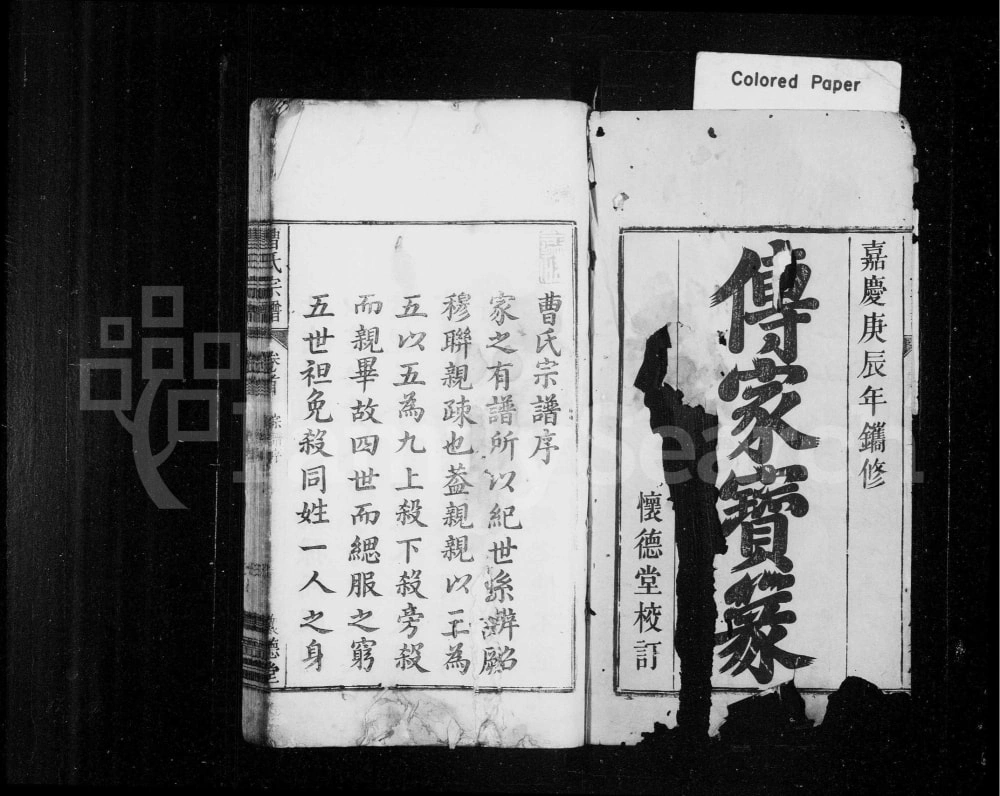 Colored Paper
嘉慶庚辰年鐫修
傳家寶篆
懷德堂校訂
曹氏宗譜序
家之有譜所以紀世系辨昭
穆聯親疎也葢親親以三為
五以五為九上殺下殺旁殺
而親畢故四世而緦服之窮
五世袒免殺同姓一人之身
曹氏宗譜
卷之首
德堂